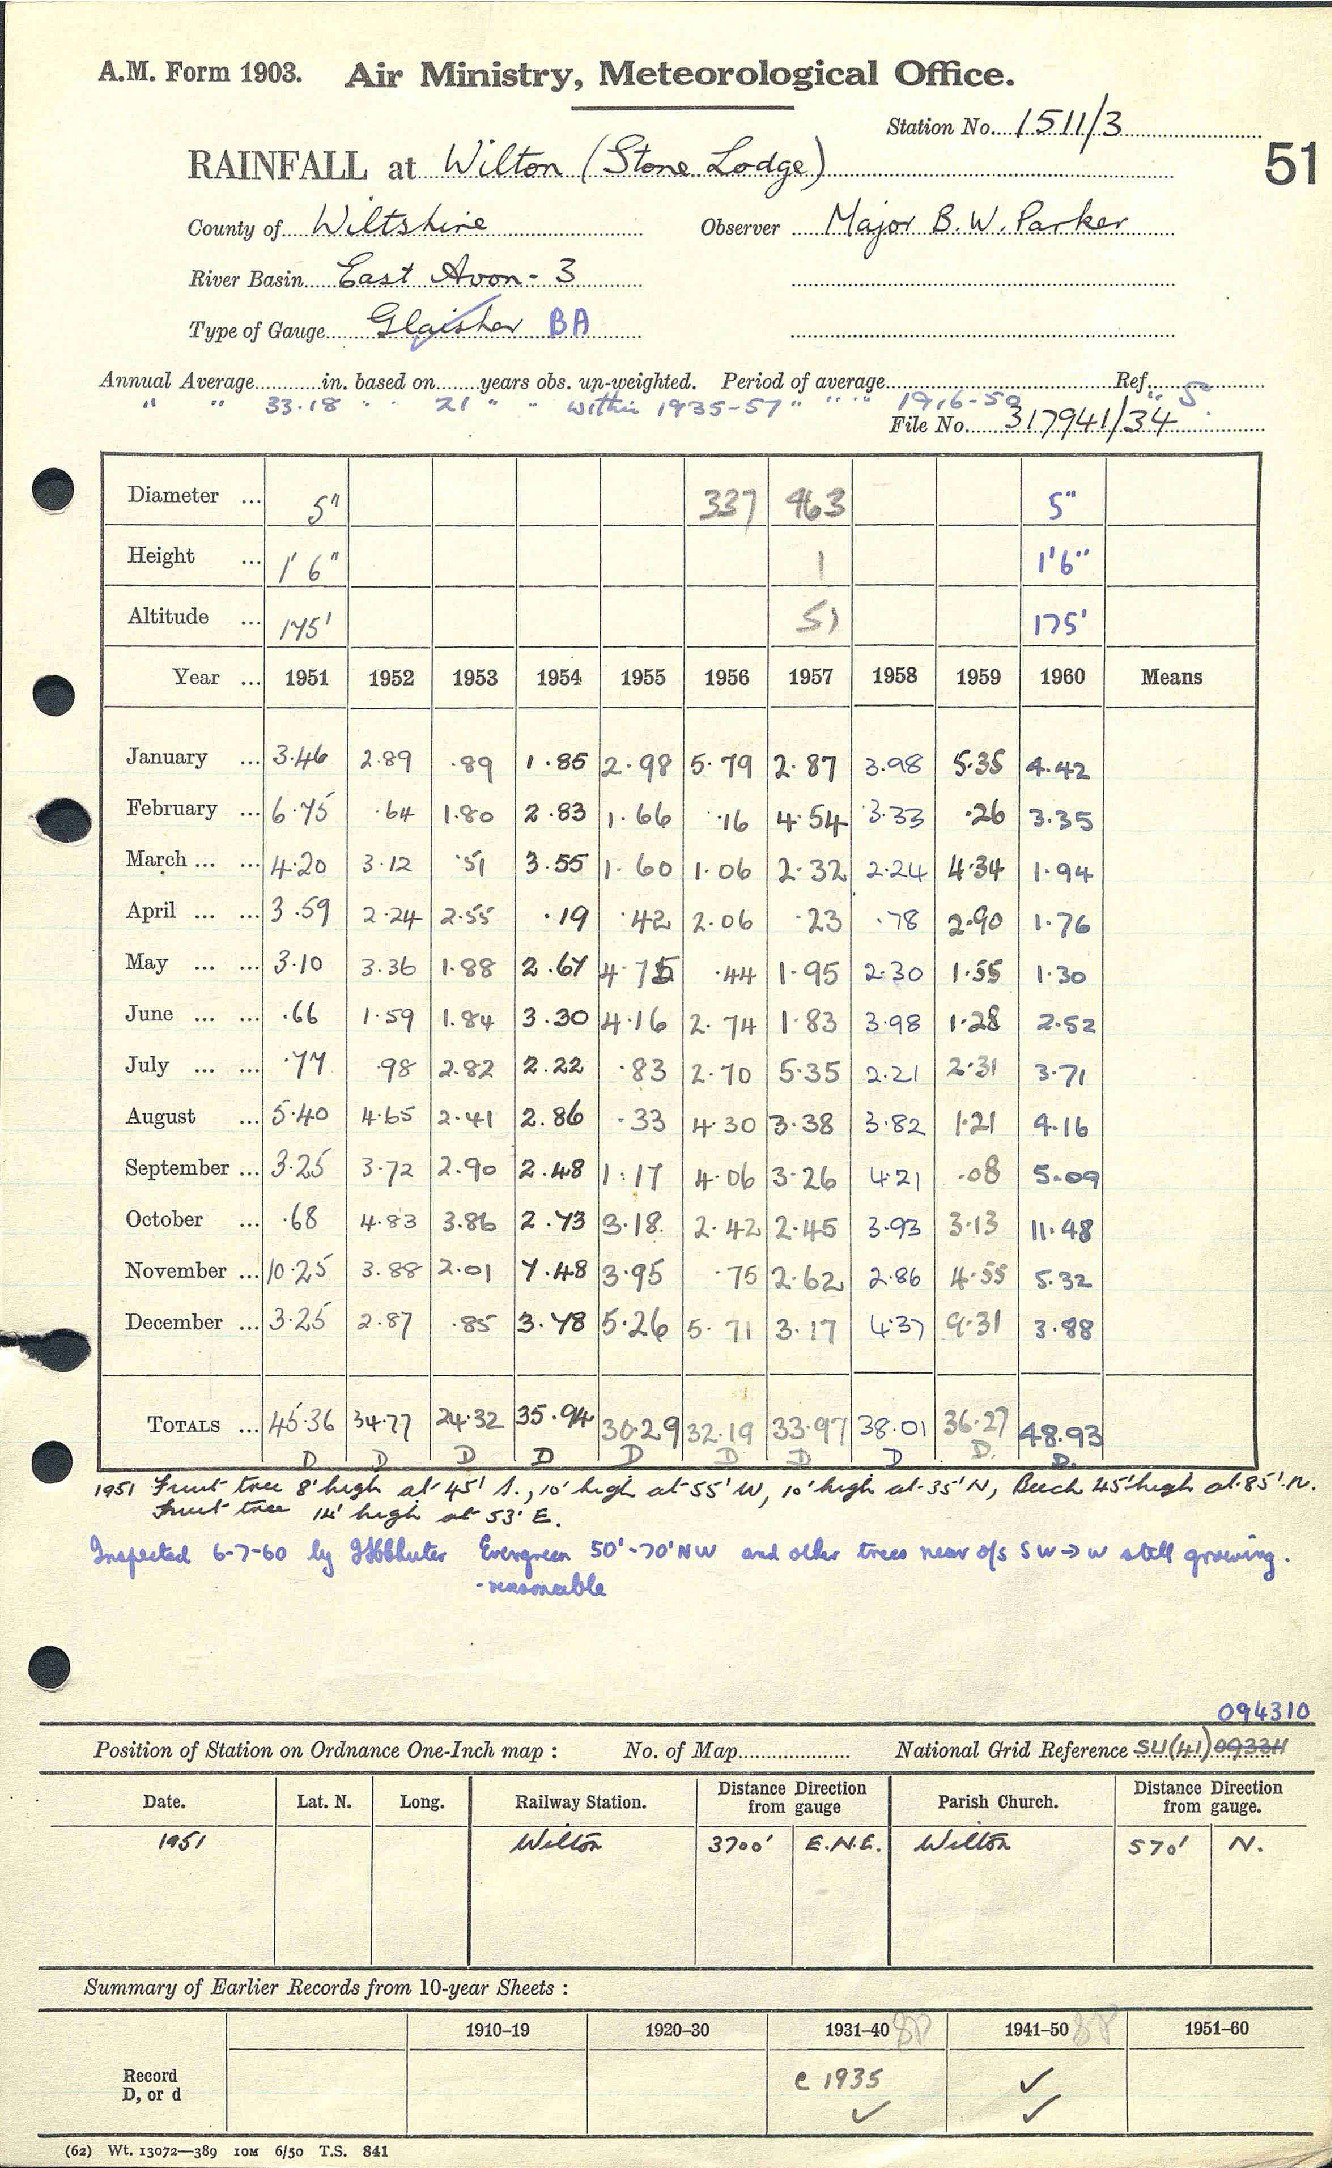 A.M. Form 1903. Air Ministry, Meteorological Office.
Station No. 1511/3
51
RAINFALL at Wilton (Stone Lodge)
County of Wiltshire Observer Major B.W. Parker
River Basin East Avon - 3
Type of Gauge Glaisher BA
Annual Average in. based on years obs. up-weighted. Period of average Ref.
" " 33.18 " " 21 " " within 1935-57 " " " " 1916-50 " 5.
File No. 317941/34
Diameter ... 5" 337 463 5"
Height ... 1' 6" 1 1'6"
Altitude ... 175' 51 175'
Year ... 1951 1952 1953 1954 1955 1956 1957 1958 1959 1960 Means
January ... 3.46 2.89 .89 1.85 2.98 5.79 2.87 3.98 5.35 4.42
February ... 6.75 .64 1.80 2.83 1.66 .16 4.54 3.33 .26 3.35
March ... ... 4.20 3.12 .51 3.55 1.60 1.06 2.32 2.24 4.34 1.94
April ... ... 3.59 2.24 2.55 .19 .42 2.06 .23 .78 2.90 1.76
May ... ... 3.10 3.36 1.88 2.67 4.75 .44 1.95 2.30 1.55 1.30
June ... ... .66 1.59 1.84 3.30 4.16 2.74 1.83 3.98 1.28 2.52
July ... ... .77 .98 2.82 2.22 .83 2.70 5.35 2.21 2.31 3.71
August ... 5.40 4.65 2.41 2.86 .33 4.30 3.38 3.82 1.21 4.16
September ... 3.25 3.72 2.90 2.48 1.17 4.06 3.26 4.21 .08 5.09
October ... .68 4.83 3.86 2.73 3.18 2.42 2.45 3.93 3.13 11.48
November ... 10.25 3.88 2.01 7.48 3.95 .75 2.62 2.86 4.55 5.32
December ... 3.25 2.87 .85 3.78 5.26 5.71 3.17 4.37 9.31 3.88
TOTALS ... 45.36 34.77 24.32 35.94 30.29 32.19 33.97 38.01 36.27 48.93
D D D D D D D D D. D.
1951 Fruit tree 8' high at 45' S., 10' high at 55' W, 10' high at 35' N, Beech 45' high at 85' N.
Fruit tree 14' high at 53' E.
Inspected 6-7-60 by Evergreen 50'-70' NW and other trees near o/s SW → W still growing.
- reasonable
094310
Position of Station on Ordnance One-Inch map : No. of Map National Grid Reference SU(41) 093311
Date. Lat. N. Long. Railway Station. Distance from gauge Direction Parish Church. Distance from Direction gauge.
1951 Wilton 3700' E.N.E. Wilton 570' N.
Summary of Earlier Records from 10-year Sheets :
1910–19 1920–30 1931–40 1941–50 1951–60
Record D, or d c 1935 ✓
✓ ✓
(62) Wt. 13072—389 10M 6/50 T.S. 841